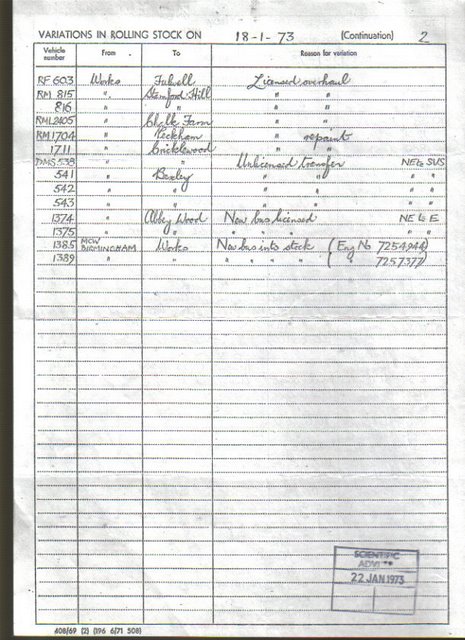 VARIATIONS IN ROLLING STOCK ON 18-1-73 (Continuation) 2
Vehicle number From To Reason for variation
RF 603 Works Fulwell Licensed overhaul
RM 815 " Stamford Hill " "
816 " " " "
RML2405 " Chalk Farm " "
RM1704 " Peckham " repaint
1711 " Cricklewood " "
DMS 538 " " Unlicensed transfer NE to SVS
541 " Bexley " " " "
542 " " " " " "
543 " " " " " "
1374 " Abbey Wood New bus licensed NE to E
1375 " " " " " " "
1385 MCW BIRMINGHAM Works New bus into stock (Eng No 7254944)
1389 " " " " " " ( " 7257377)
SCIENTIFIC
22 JAN 1973
408/69 (2) (196 6/71 508)